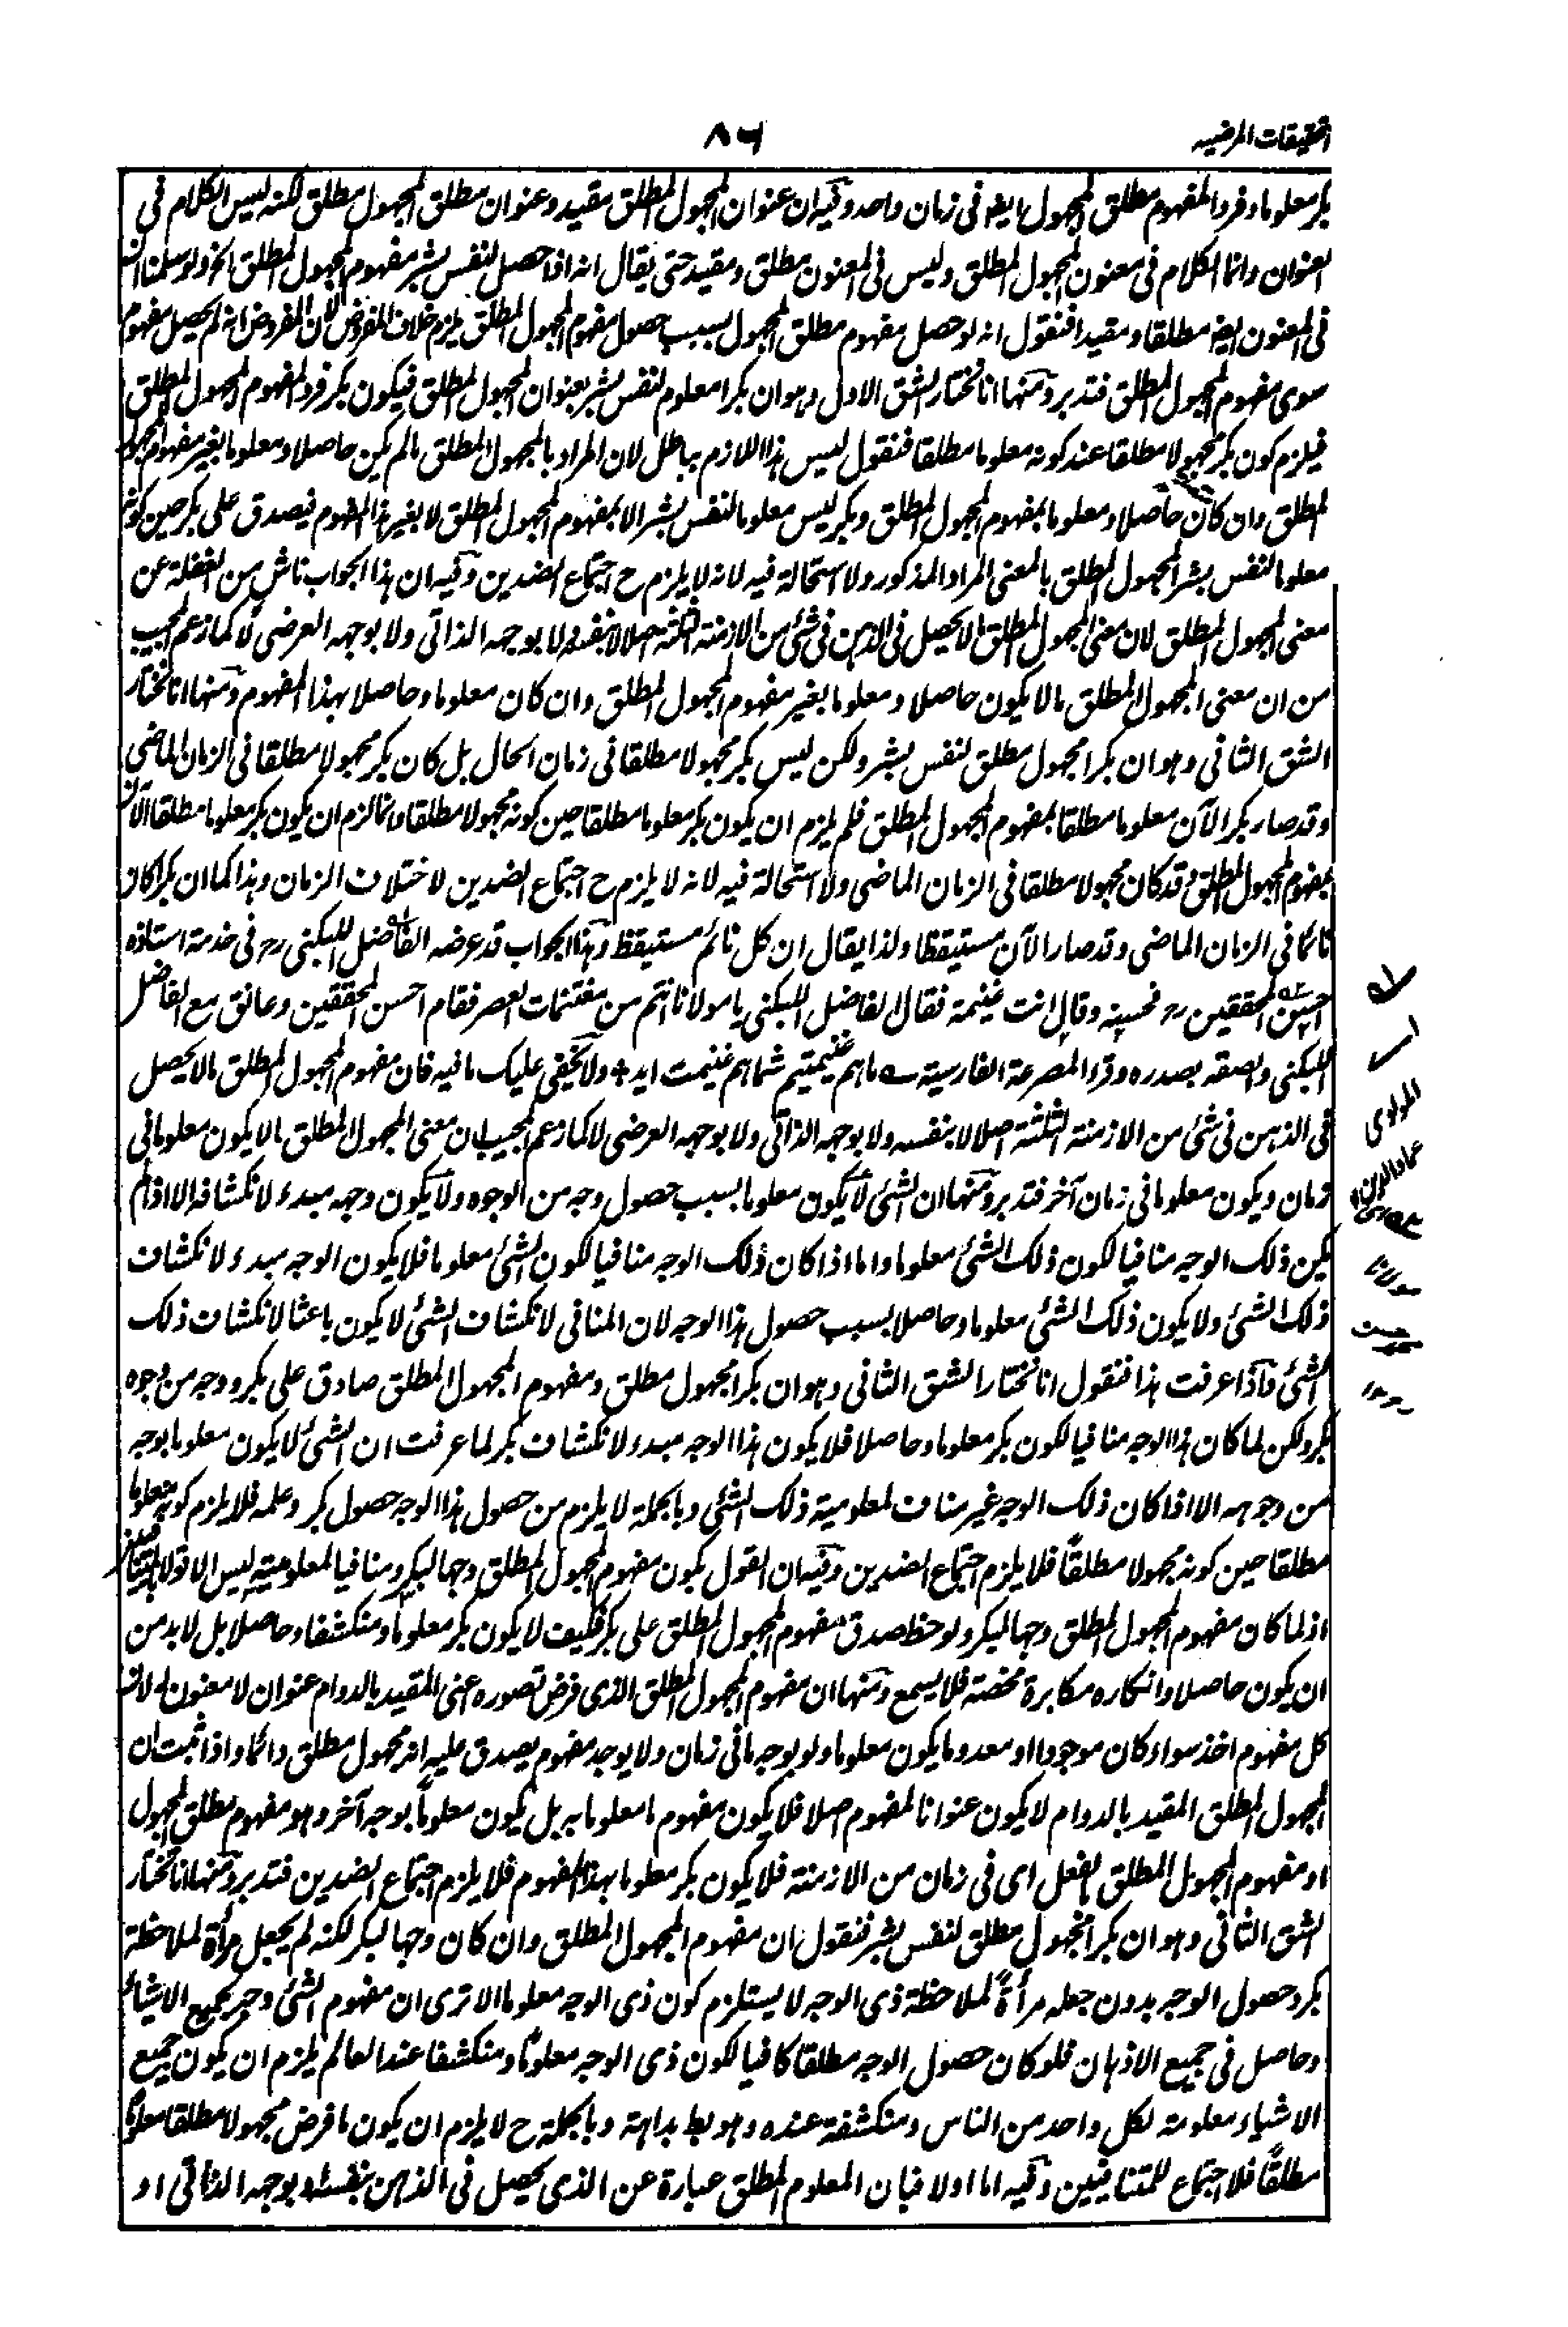 التحقيقات المرضيه
٨٦
بكر معلوما وفردا لمفهوم مطلق المجهول ايضا فى زمان واحد وفيه ان عنوان المجهول المطلق مقيد وعنوان مطلق المجهول مطلق لكنه ليس الكلام فى
العنوان وانما الكلام فى معنون المجهول المطلق وليس فى المعنون مطلق ومقيد حتى يقال انه اذا حصل لنفس بشر مفهوم المجهول المطلق الخ ولو سلمنا ان
فى المعنون ايضا مطلقا ومقيدا فنقول انه لو حصل مفهوم مطلق المجهول بسبب حصول مفهوم المجهول المطلق يلزم خلاف المفروض لان المفروض انه لم يحصل مفهوم
سوى مفهوم المجهول المطلق فتدبر ومنها انا نختار الشق الاول وهو ان بكرا معلوم لنفس بشر بعنوان المجهول المطلق فيكون بكر فردا لمفهوم المجهول المطلق
فيلزم كون بكر مجهولا مطلقا عند كونه معلوما مطلقا فنقول ليس هذا اللازم بباطل لان المراد بالمجهول المطلق مالم يكن حاصلا ومعلوما بغير مفهوم المجهول
المطلق وان كان حاصلا ومعلوما بمفهوم المجهول المطلق وبكر ليس معلوما لنفس بشر الا بمفهوم المجهول المطلق لا بغير هذا المفهوم فيصدق على بكر حين كونه
معلوما لنفس بشر المجهول المطلق بالمعنى المراد المذكور ولا استحالة فيه لانه لا يلزم ح اجتماع الضدين وفيه ان هذا الجواب ناش من الغفلة عن
معنى المجهول المطلق لان معنى المجهول المطلق ما لا يحصل فى الذهن فى شئ من الازمنة الثلثة اصلا لا بنفسه ولا بوجهه الذاتى ولا بوجهه العرضى لا كما زعم المجيب
من ان معنى المجهول المطلق ما لا يكون حاصلا ومعلوما بغير مفهوم المجهول المطلق وان كان معلوما وحاصلا بهذا المفهوم ومنها انا نختار
الشق الثانى وهو ان بكرا مجهول مطلق لنفس بشر ولكن ليس بكر مجهولا مطلقا فى زمان الحال بل كان بكر مجهولا مطلقا فى الزمان الماضى
وقد صار بكر الآن معلوما مطلقا بمفهوم المجهول المطلق فلم يلزم ان يكون بكر معلوما مطلقا حين كونه مجهولا مطلقا وانما لزم ان يكون بكر معلوما مطلقا الآن
بمفهوم المجهول المطلق وقد كان مجهولا مطلقا فى الزمان الماضى ولا استحالة فيه لانه لا يلزم ح اجتماع الضدين لاختلاف الزمان وهذا كما ان بكرا كان
نائما فى الزمان الماضى وقد صار الآن مستيقظا ولذا يقال ان كل نائم مستيقظ وهذا الجواب قد عرضه الفاضل اللبكنى رح فى خدمة استاذه
احسن المحققين رح فحسبنه وقال انت غنيمة فقال الفاضل اللبكنى يا مولانا انتم من مغتنمات العصر فقام احسن المحققين وعانق مع الفاضل
اللبكنى والصقه بصدره وقرء المصرعة الفارسية ـه ما هم غنيمتيم شما هم غنيمت ايد + ولا يخفى عليك ما فيه فان مفهوم المجهول المطلق ما لا يحصل
فى الذهن فى شئ من الازمنة الثلثة اصلا لا بنفسه ولا بوجهه الذاتى ولا بوجهه العرضى لا كما زعم المجيب ان معنى المجهول المطلق ما لا يكون معلوما فى
زمان ويكون معلوما فى زمان آخر فتدبر ومنها ان الشئ لا يكون معلوما بسبب حصول وجه من الوجوه ولا يكون وجهه مبدء لانكشافه الا اذا لم
يكن ذلك الوجه منافيا لكون ذلك الشئ معلوما واما اذا كان ذلك الوجه منافيا لكون الشئ معلوما فلا يكون الوجه مبدء لانكشاف
ذلك الشئ ولا يكون ذلك الشئ معلوما وحاصلا بسبب حصول هذا الوجه لان المنافى لانكشاف الشئ لا يكون باعثا لانكشاف ذلك
الشئ فاذا عرفت هذا فنقول انا نختار الشق الثانى وهو ان بكرا مجهول مطلق ومفهوم المجهول المطلق صادق على بكر ووجه من وجوه
بكر ولكن لما كان هذا الوجه منافيا لكون بكر معلوما وحاصلا فلا يكون هذا الوجه مبدء لانكشاف بكر لما عرفت ان الشئ لا يكون معلوما بوجه
من وجوهه الا اذا كان ذلك الوجه غير مناف لمعلومية ذلك الشئ وبالجملة لا يلزم من حصول هذا الوجه حصول بكر وعلمه فلا يلزم كونه معلوما
مطلقا حين كونه مجهولا مطلقاً فلا يلزم اجتماع الضدين وفيه ان القول بكون مفهوم المجهول المطلق وجها لبكر ومنافيا لمعلوميته ليس الا قولا
اذ لما كان مفهوم المجهول المطلق وجها لبكر ولوحظ صدق مفهوم المجهول المطلق على بكر فكيف لا يكون بكر معلوماً ومنكشفا وحاصلا بل لا بد من
ان يكون حاصلا وانكاره مكابرة محضته فلا يسمع ومنها ان مفهوم المجهول المطلق الذى فرض تصوره اعنى المقيد بالدوام عنوان لا معنون له لان
كل مفهوم اخذ سواء كان موجودا او معدوما يكون معلوما ولو بوجه ما فى زمان ولا يوجد مفهوم يصدق عليه انه مجهول مطلق دائما واذا ثبت ان
المجهول المطلق المقيد بالدوام لا يكون عنوانا لمفهوم اصلا فلا يكون مفهوم ما معلوما به بل يكون معلوماً بوجه آخر وهو مفهوم مطلق المجهول
او مفهوم المجهول المطلق بالفعل اى فى زمان من الازمنة فلا يكون بكر معلوما بهذا المفهوم فلا يلزم اجتماع الضدين فتدبر ومنها انا نختار
الشق الثانى وهو ان بكرا مجهول مطلق لنفس بشر فنقول ان مفهوم المجهول المطلق وان كان وجها لبكر لكنه لم يجعل مرأة لملاحظة
بكر وحصول الوجه بدون جعله مرأةً لملاحظة ذى الوجه لا يستلزم كون ذى الوجه معلوما الا ترى ان مفهوم الشئ وجه بجميع الاشياء
وحاصل فى جميع الاذهان فلو كان حصول الوجه مطلقا كافيا لكون ذى الوجه معلوماً ومنكشفا عند العالم يلزم ان يكون جميع
الاشياء معلومة لكل واحد من الناس ومنكشفة عنده وهو بط بداهة وبالجملة ح لا يلزم ان يكون ما فرض مجهولا مطلقا معلوماً
مطلقاً فلا اجتماع للمتنافيين وفيه اما اولا فبان المعلوم المطلق عبارة عن الذى يحصل فى الذهن بنفسه او بوجهه الذاتى او
المولوى
عماد الدين
مولانا